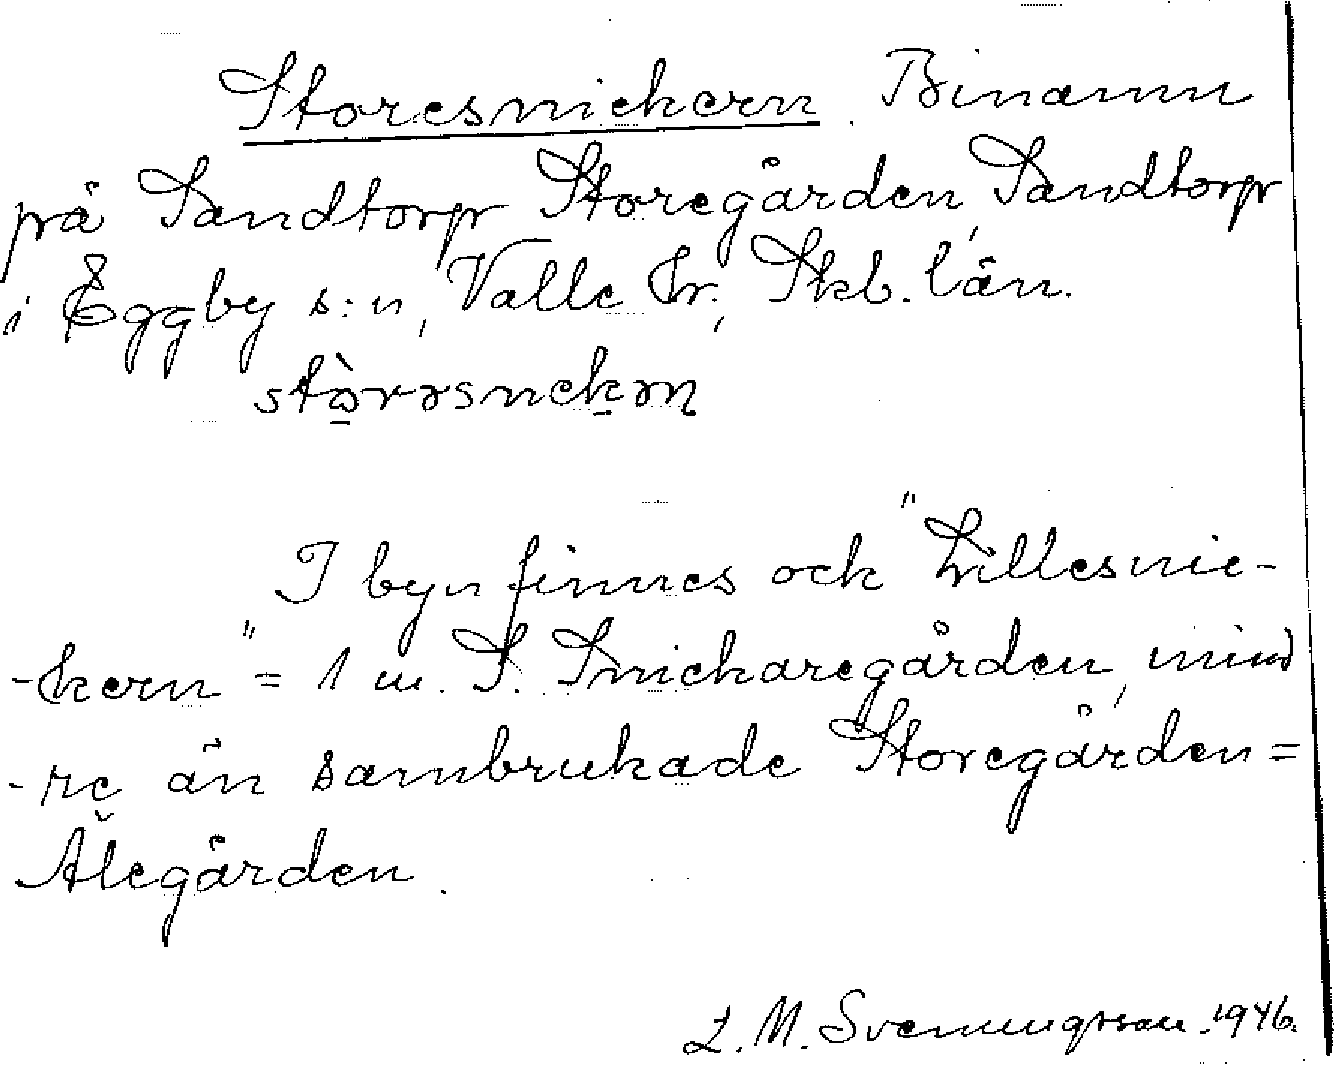 Storesnickern. Binamn
på Sandtorp Storegården, Sandtorp
i Eggby s:n, Valle hr., Skb. län.
stòrəsnekəɳ
I byn finnes ock "Lillesnic-
-kern" = 1 m. S. Snickaregården, mind
-re än sambrukade Storegården=
Ålegården.
L. M. Svenungsson. 1946.